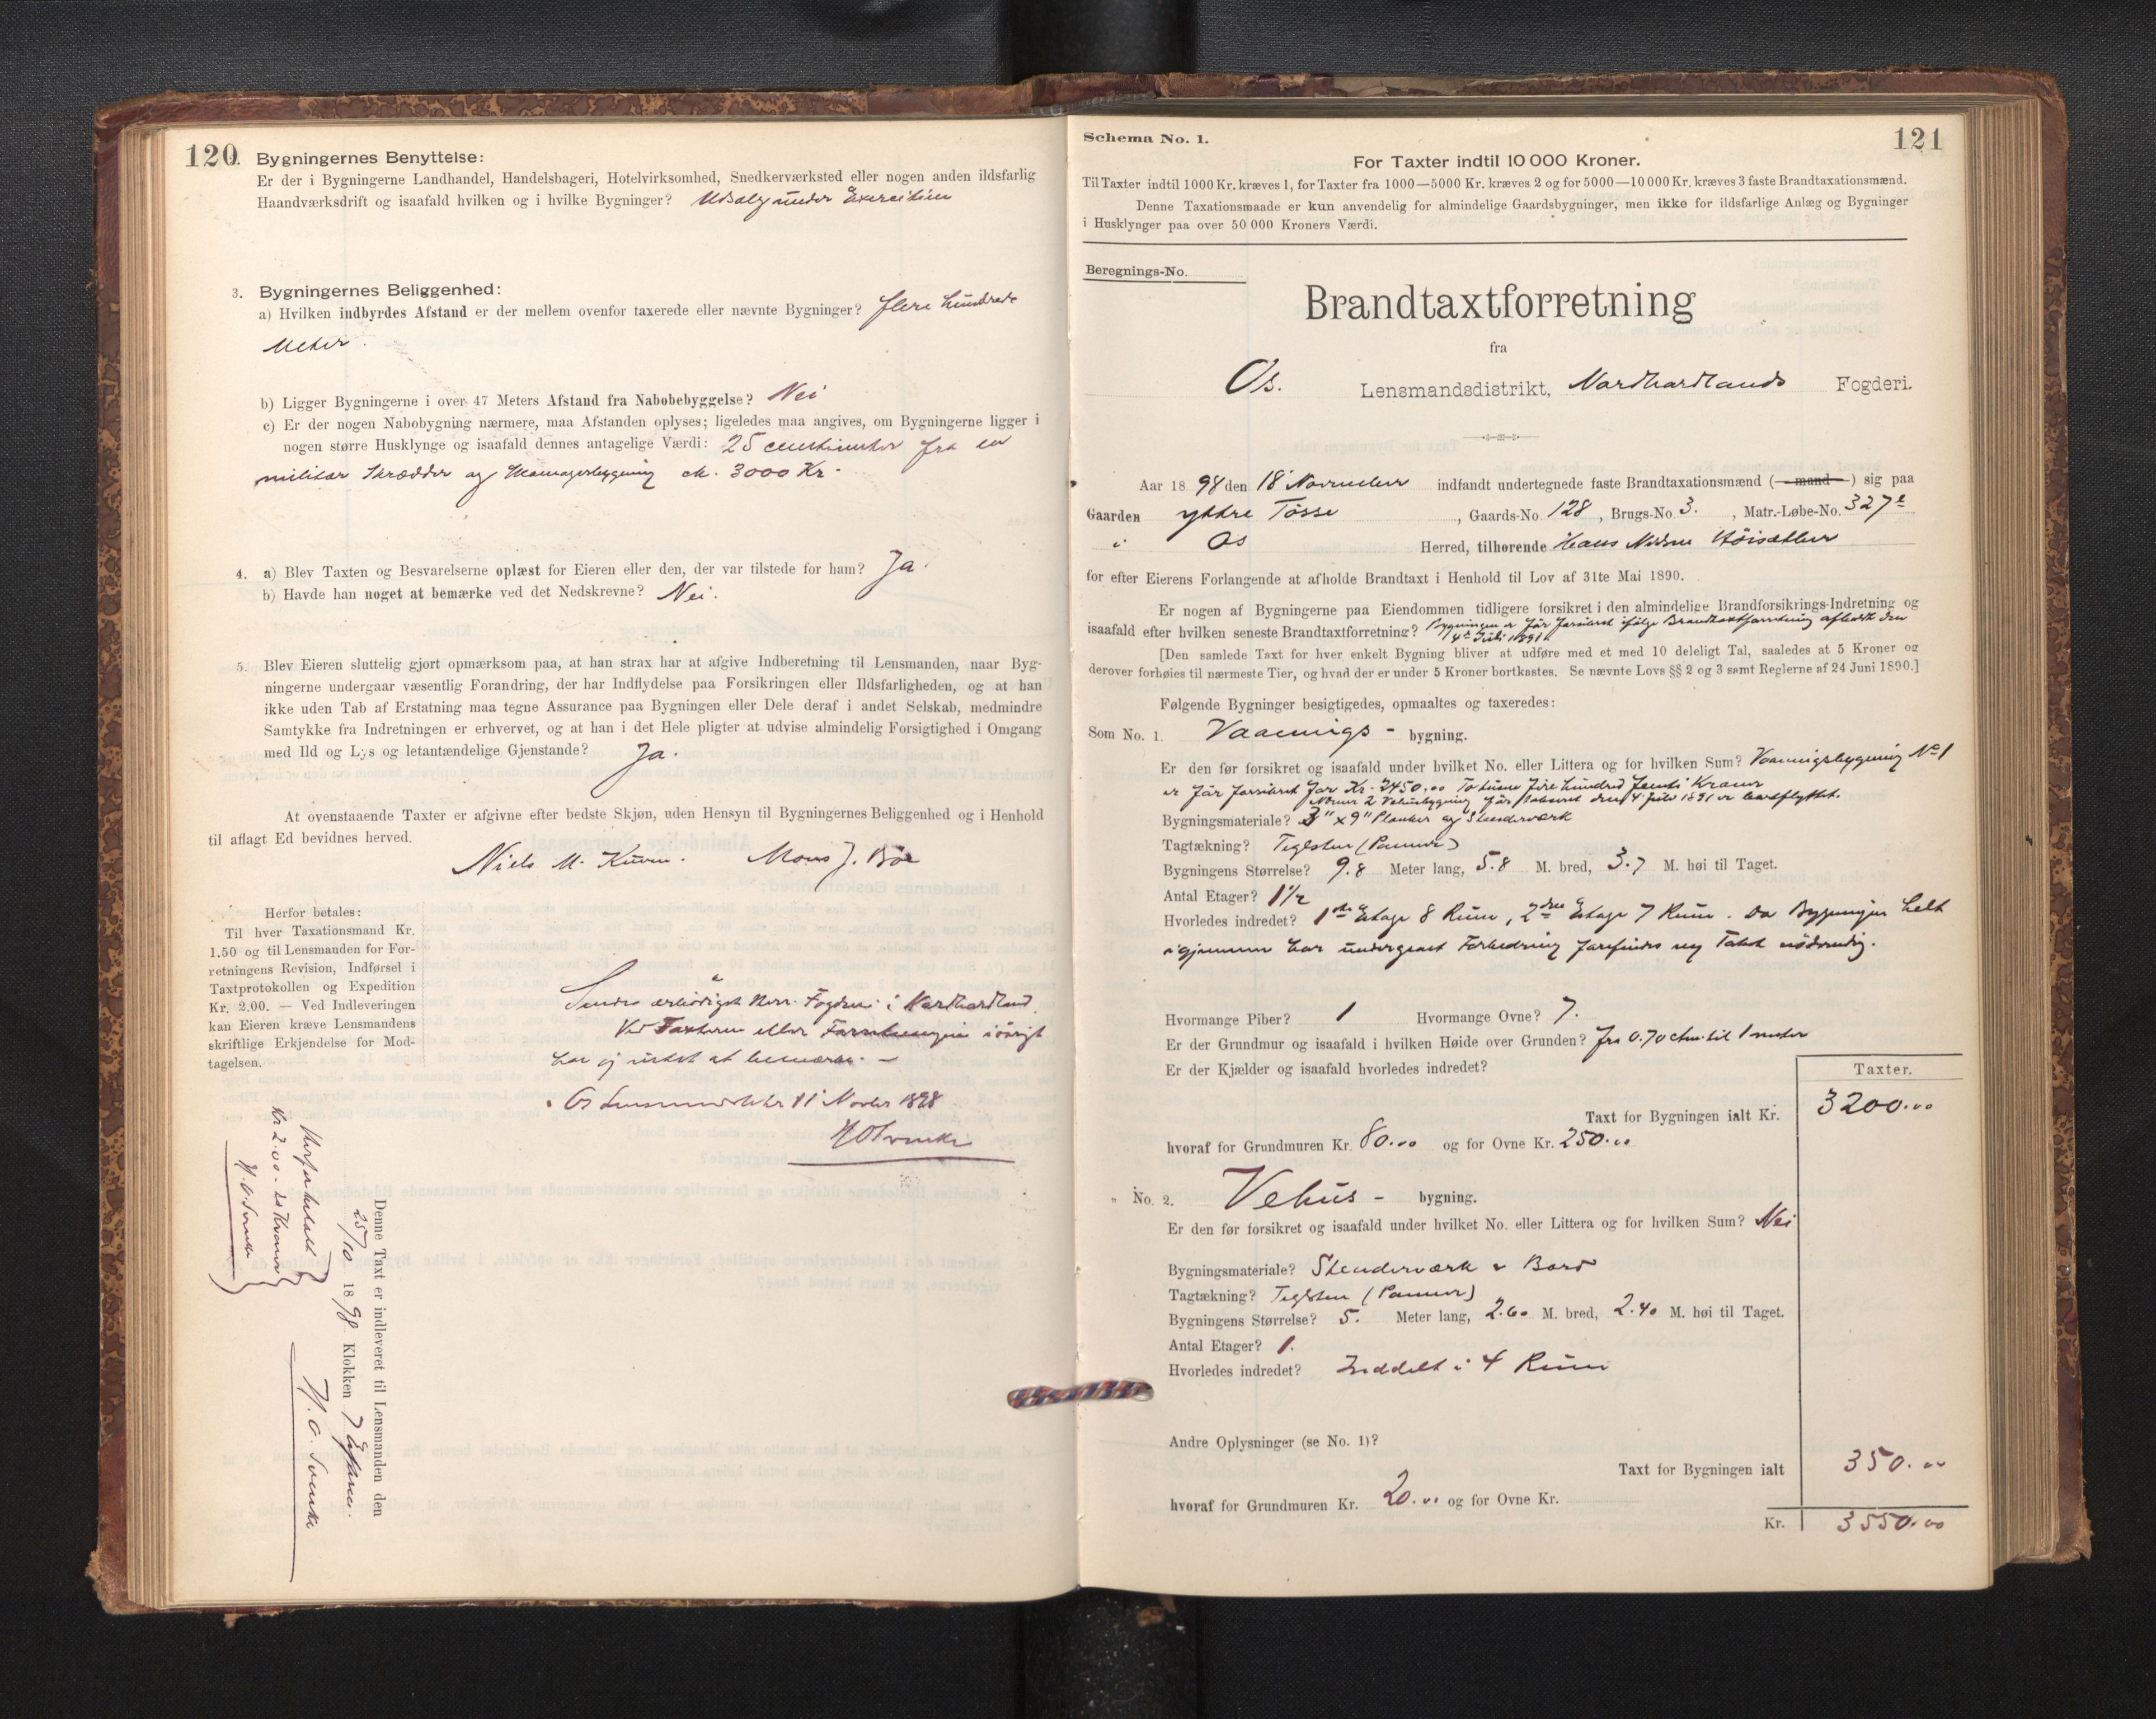 120.
Bygningernes Benyttelse:
Er der i Bygningerne Landhandel, Handelsbageri, Hotelvirksomhed, Snedkerværksted eller nogen anden ildsfarlig
Haandværksdrift og isaafald hvilken og i hvilke Bygninger? Udsalg under Exercitien
3. Bygningernes Beliggenhed:
a) Hvilken indbyrdes Afstand er der mellem ovenfor taxerede eller nævnte Bygninger? flere hundrede
Meter.
b) Ligger Bygningerne i over 47 Meters Afstand fra Nabobebyggelse? Nei
c) Er der nogen Nabobygning nærmere, maa Afstanden oplyses; ligeledes maa angives, om Bygningerne ligger i
nogen større Husklynge og isaafald dennes antagelige Værdi: 25 centimeter fra en
militær Skrædder og bygning 3000 Kr.
4. a) Blev Taxten og Besvarelserne oplæst for Eieren eller den, der var tilstede for ham? Ja.
b) Havde han noget at bemærke ved det Nedskrevne? Nei.
5. Blev Eieren sluttelig gjort opmærksom paa, at han strax har at afgive Indberetning til Lensmanden, naar Byg-
ningerne undergaar væsentlig Forandring, der har Indflydelse paa Forsikringen eller Ildsfarligheden, og at han
ikke uden Tab af Erstatning maa tegne Assurance paa Bygningen eller Dele deraf i andet Selskab, medmindre
Samtykke fra Indretningen er erhvervet, og at han i det Hele pligter at udvise almindelig Forsigtighed i Omgang
med Ild og Lys og letantændelige Gjenstande? Ja.
At ovenstaaende Taxter er afgivne efter bedste Skjøn, uden Hensyn til Bygningernes Beliggenhed og i Henhold
til aflagt Ed bevidnes herved.
Niels M. Kuven. Mons J. Bøe
Herfor betales:
Til hver Taxationsmand Kr.
1.50 og til Lensmanden for For-
retningens Revision, Indførsel i
Taxtprotokollen og Expedition
Kr. 2.00. — Ved Indleveringen
kan Eieren kræve Lensmandens
skriftlige Erkjendelse for Mod-
tagelsen.
Sendes ærbødigst Herr Fogden i Nordhordland.
Ved Taxterne eller Forretningen iøvrigt
har jeg intet at bemærke. —
Os Lensmandsktr 11 Novbr 1898
Herfor betalt
Kr 2.00. to Kroner
Denne Taxt er indleveret til Lensmanden den
25/10 1898 Klokken 7 Efterm.
121
Schema No. 1.
For Taxter indtil 10 000 Kroner.
Til Taxter indtil 1000 Kr. kræves 1, for Taxter fra 1000—5000 Kr. kræves 2 og for 5000—10 000 Kr. kræves 3 faste Brandtaxationsmænd.
Denne Taxationsmaade er kun anvendelig for almindelige Gaardsbygninger, men ikke for ildsfarlige Anlæg og Bygninger
i Husklynger paa over 50 000 Kroners Værdi.
Beregnings-No.
Brandtaxtforretning
fra
Os. Lensmandsdistrikt, Nordhordlands Fogderi.
Aar 1898 den 18 November indfandt undertegnede faste Brandtaxationsmænd (—mand—) sig paa
Gaarden yttre Tøsse, Gaards-No. 128, Brugs-No. 3., Matr.-Løbe-No. 327e
i Os Herred, tilhørende Hans Nilsen Høisæther
for efter Eierens Forlangende at afholde Brandtaxt i Henhold til Lov af 31te Mai 1890.
Er nogen af Bygningerne paa Eiendommen tidligere forsikret i den almindelige Brandforsikrings-Indretning og
isaafald efter hvilken seneste Brandtaxtforretning? Bygningen er før forsikret ifølge Brandtaxtforretning afholdt den
4de Juli 1891.
[Den samlede Taxt for hver enkelt Bygning bliver at udføre med et med 10 deleligt Tal, saaledes at 5 Kroner og
derover forhøies til nærmeste Tier, og hvad der er under 5 Kroner bortkastes. Se nævnte Lovs §§ 2 og 3 samt Reglerne af 24 Juni 1890.]
Følgende Bygninger besigtigedes, opmaaltes og taxeredes:
Som No. 1. Vaanings- bygning.
Er den før forsikret og isaafald under hvilket No. eller Littera og for hvilken Sum? Vaaningsbygning No 1
er før forsikret for Kr. 2450.00 To tusene fire hundred femti Kroner
Numer 2 Vehusbygning før den 4 Juli 1891 er bortflyttet.
Bygningsmateriale? 3" x 9" Planker og Stenderværk
Tagtækning? Teglsten (Panner)
Bygningens Størrelse? 9.8 Meter lang, 5.8 M. bred, 3.7 M. høi til Taget.
Antal Etager? 1½
Hvorledes indrettet? 1ste Etage 8 Rum, 2den Etage 7 Rum. Da Bygningen helt
igjennem har undergaaet Forbedring forefindes ny Takst nødvendig.
Hvormange Piber? 1 Hvormange Ovne? 7.
Er der Grundmur og isaafald i hvilken Høide over Grunden? fra 0.70 ctm. til 1 meter
Er der Kjælder og isaafald hvorledes indredet?
Taxter.
Taxt for Bygningen ialt Kr. 3200.00
hvoraf for Grundmuren Kr. 80.00 og for Ovne Kr. 250.00
" No. 2. Vehus- bygning.
Er den før forsikret og isaafald under hvilket No. eller Littera og for hvilken Sum? Nei
Bygningsmateriale? Stenderværk & Bord
Tagtækning? Teglsten (Panner)
Bygningens Størrelse? 5. Meter lang, 2.60 M. bred, 2.40 M. høi til Taget.
Antal Etager? 1.
Hvorledes indredet? Inddelt i 4 Rum
Andre Oplysninger (se No. 1)?
Taxt for Bygningen ialt 350.00
hvoraf for Grundmuren Kr. 20.00 og for Ovne Kr.
Kr. 3550.00